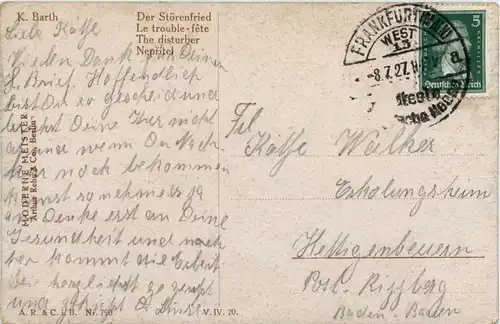 K. Barth
Der Störenfried
Le trouble-fête
The disturber
Nepřítel
Liebe Käthe
Vielen Dank für Deinen
lb. Brief. Hoffendlich
bist Du so gescheid und
Deine Kur nicht
und wenn Du Nach-
kur noch bekommen
kannst so nehme es ja
an. Denke erst an Deine
Gesundheit und nach-
her kommt die Arbeit.
Sei herzlichst gegrüßt
und geküßt
MODERNE MEISTER
Arthur Rehn & Co., Berlin
A. R. & C. i. B. Nr. 790
V. IV. 20.
FRANKFURT (MAIN)
WEST
13
-8.7.27.
a
5
Deutsches Reich
Frl
Käthe Walker
Erholungsheim
Heiligenbeuern
Post.
Baden-Baden